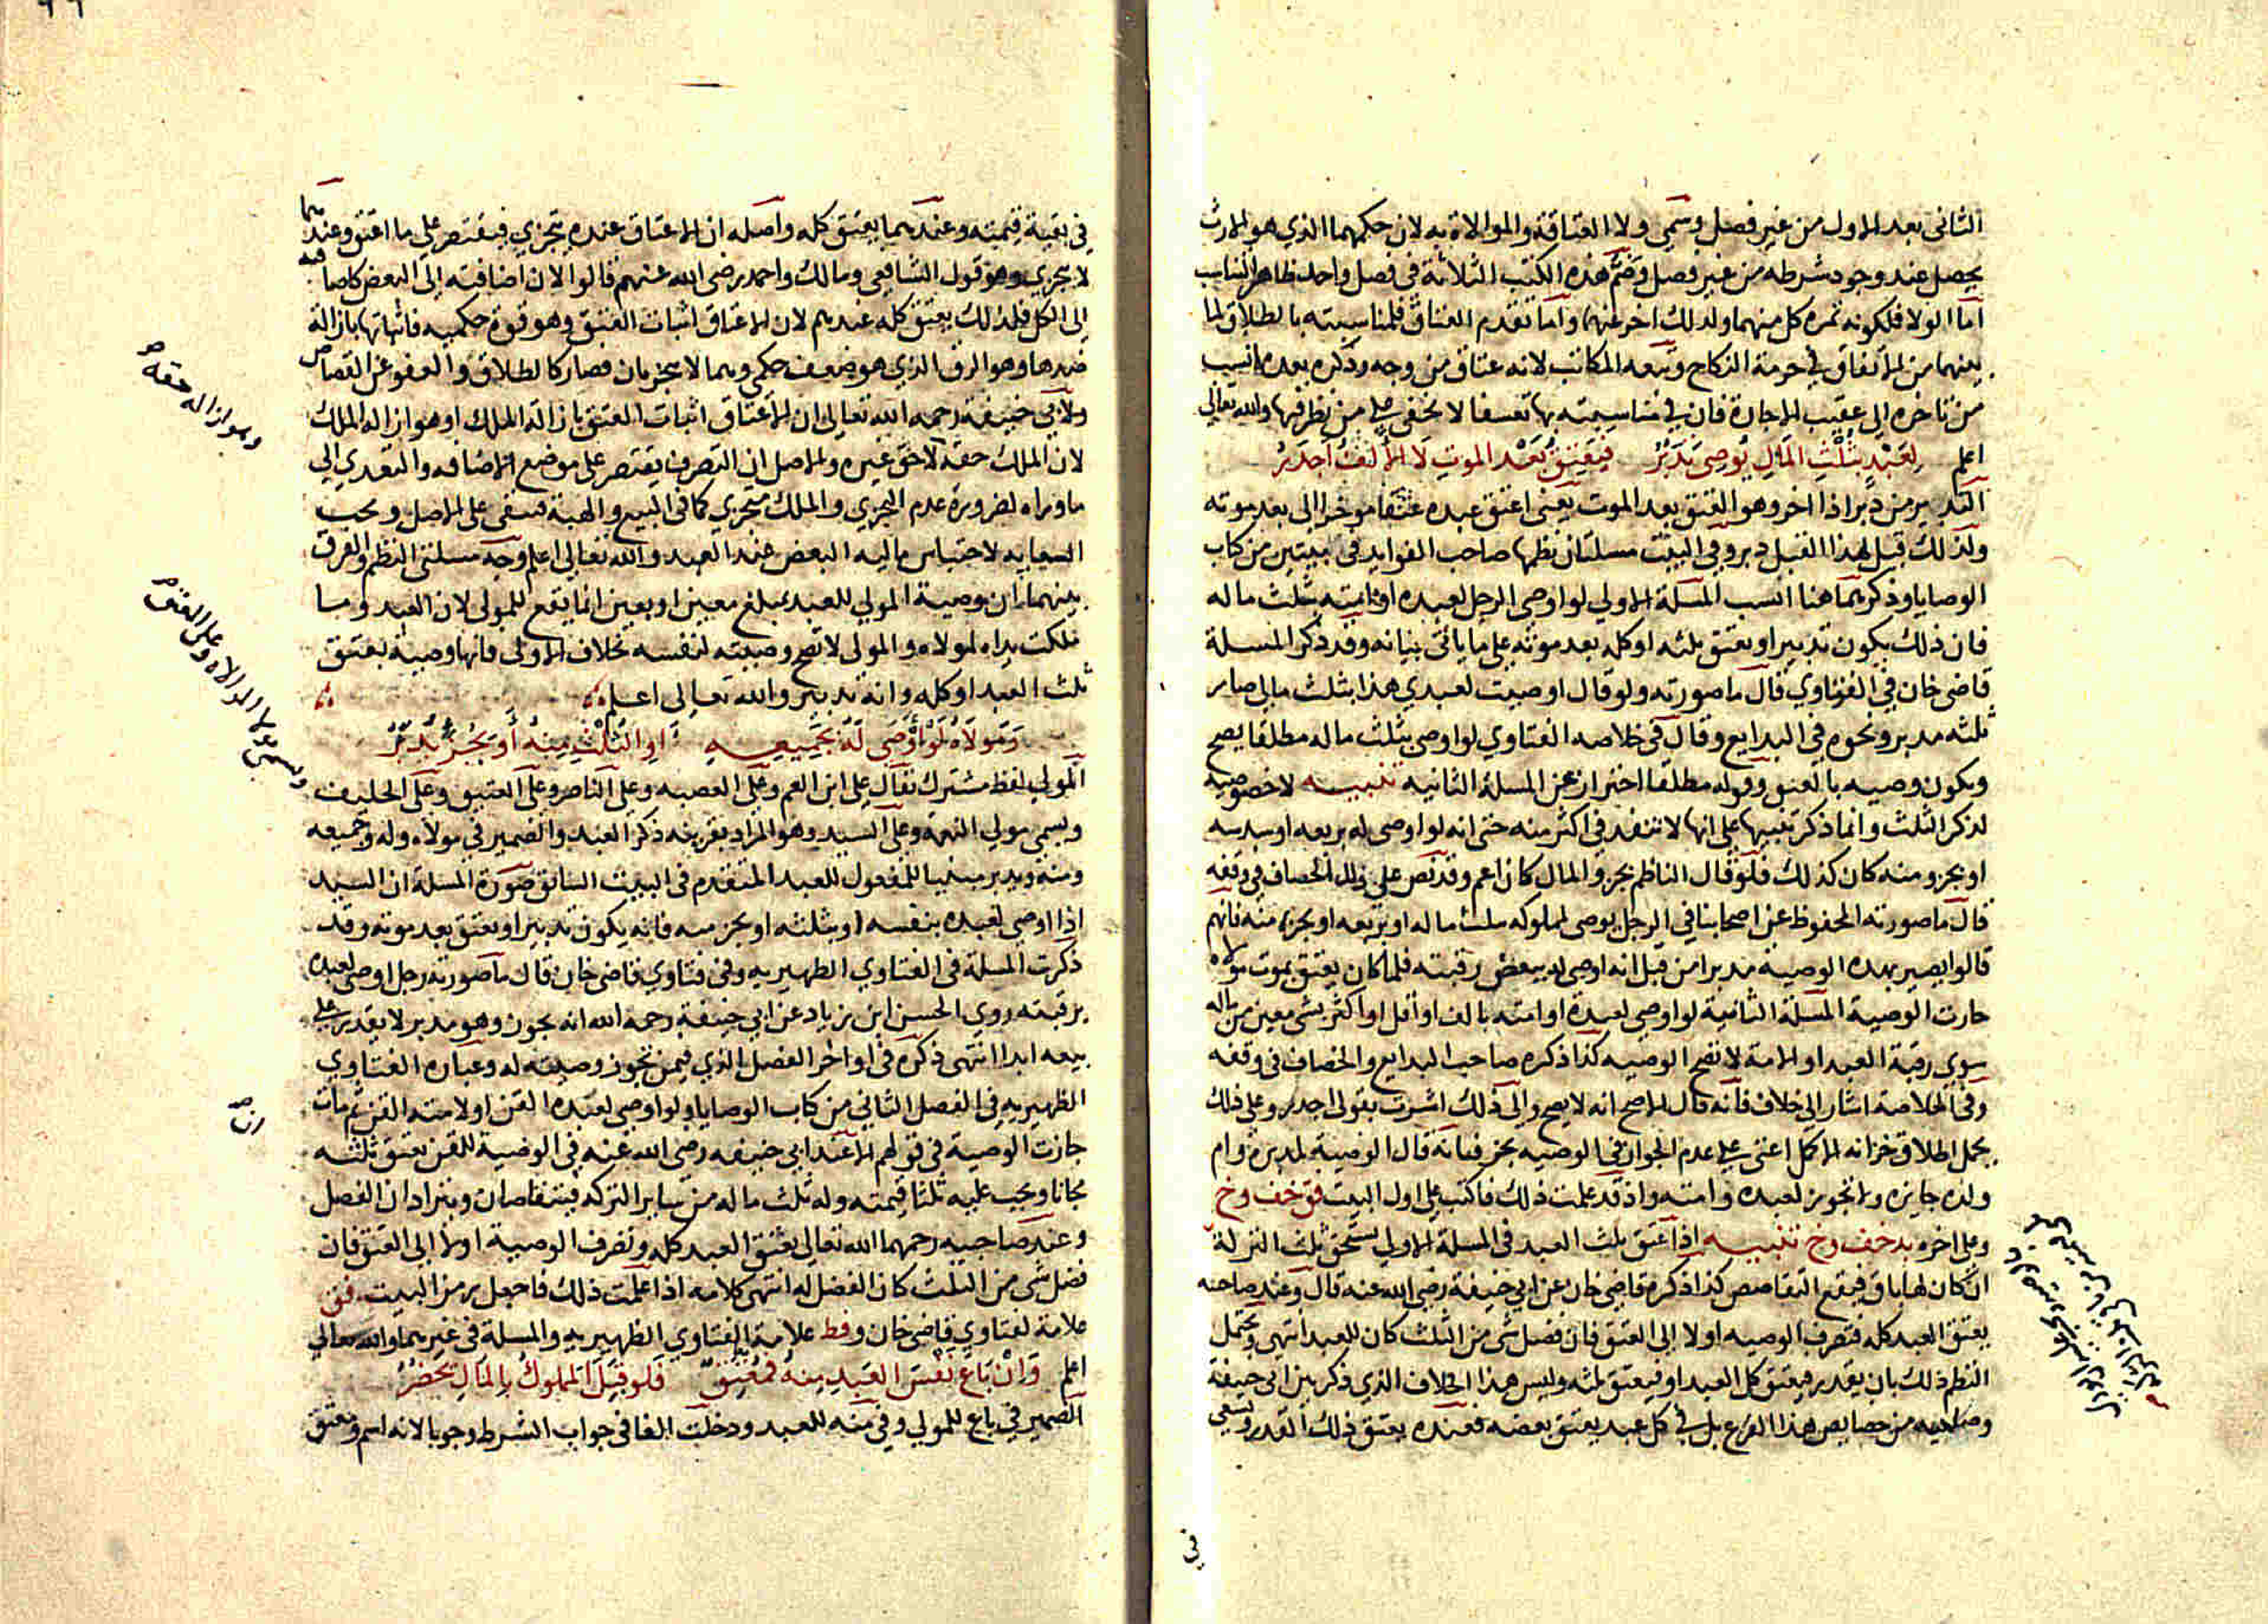 الثانى بعد الاول من غير فصل وسمى ولا العتاقة والموالاة به لان حكمهما الذي هو الارث
يحصل عند وجود شرطه من غير فصل وضم هذه الكتب الثلاثة فى فصل واحد ظاهر التناسب
اما الولا فلكونه ثمرة كل منهما ولذلك اخر عنهما واما تقدم العتاق فلمناسبته بالطلاق لما
بينهما من الاتفاق في حرمة النكاح وتبعه المكاتب لانه عتاق من وجه وذكره بعده انسب
من تاخره الى عقيب الاجارة فان في مناسبته بها تعسفا لا يخفى على من نظر فيها والله تعالى
اعلم لِعَبْدٍ بِثُلْثِ المَالِ يُوصِى يُدَبَّرُ فيَعْتِقُ بَعْدَ الموتِ لَا الأَلفُ أَجدَرُ
التدبير من دبر اذا اخر وهو العتق بعد الموت يعنى اعتق عبده عتقا موخرا الى بعد موته
ولذلك قيل لهذا الفيل دبر وفي البيت مسلتان نظمها صاحب الفوايد فى بيتين من كتاب
الوصايا وذكرهما هنا انسب المسلة الاولى لو اوصى الرجل لعبده او امته بثلث ماله
فان ذلك يكون تدبيرا ويعتق ثلثه او كله بعد موته على ما ياتى بيانه وقد ذكر المسلة
قاضى خان في الفتاوي قال ما صورته ولو قال اوصيت لعبدي هذا بثلث مالى صار
ثلثه مدبرا ونحوه فى البدايع وقال فى خلاصه الفتاوي لو اوصى بثلث ماله مطلقا يصح
ويكون وصيه بالعتق وقوله مطلقا احتراز عن المسلة الثانيه تنبيه لا خصوصية
لذكر الثلث وانما ذكر تنبيها على انها لا تنفد فى اكثر منه حتى انه لو اوصى له بربعه او سدسه
او بجزو منه كان كذلك فلو قال الناظم بجزو المال كان اعم وقد نص على ذلك الخصاف فى وقفه
قال ما صورته المحفوظ عن اصحابنا فى الرجل يوصى لمملوكه بثلث ماله او بربعه او بجزء منه فانهم
قالوا يصير بهذه الوصية مدبرا من قبل انه اوصى له ببعض رقبته فلما كان يعتق بموت مولاه
جازت الوصية المسلة الثانية لو اوصى لعبده او امته بالف او اقل او اكثر بشى معين من ماله
سوى رقبة العبد او الامة لا تصح الوصيه كذا ذكره صاحب البدايع والخصاف فى وقفه
وفى الخلاصة اشار الى خلاف فانه قال الاصح انه لا يصح والى ذلك اشرت بقولى اجدر وعلى ذلك
يحمل اطلاق خزانه الاكمل اعنى على عدم الجواز فى الوصيه فانه قال الوصية لمدبره وام
ولده جايزه ولا تجوز لعبده وامته واذ قد علمت ذلك فاكتب على اول البيت فق خف وخ
وعلى اخره بد خف وخ تنبيه اذا عتق ثلث العبد فى المسلة الاولى يستحق ثلث التركة
ان كان لها باق فيقع التقاصص كذا ذكره قاضى خان عن ابى حنيفة رضى الله عنه قال وعند صاحبيه
يعتق العبد كله فتصرف الوصيه اولا الى العتق فان فضل شى من الثلث كان للعبد انتهى ويحتمل
النظم ذلك بان يقدر فيعتق كل العبد او فيعتق ثلثه وليس هذا الخلاف الذي ذكر بين ابى حنيفة
وصاحبيه من خصايص هذا الفرع بل في كل عبد يعتق بعضه فعنده يعتق ذلك القدر ويسعى
في
فى بقية قيمته وعندهما يعتق كله واصله ان الاعتاق عنده يتجزي فيقتصر على ما اعتق وعندهما
لا يتجزي وهو قول الشافعى ومالك واحمد رضى الله عنهم قالوا لان اضافته الى البعض كاضافته
الى الكل فلذلك يعتق كله عندهم لان الاعتاق اثبات العتق وهو قوة حكميه فاثباتها بازالة
ضدها وهو الرق الذي هو ضعف حكمى وهما لا يتجزيان فصار كالطلاق والعفو عن القصاص
ولابى حنيفة رحمه الله تعالى ان الاعتاق اثبات العتق بازالة الملك او هو ازالة الملك
لان الملك حقه لا حق غيره والاصل ان التصرف يقتصر على موضع الاضافه والتعدي الى
ما وراه لضرورة عدم التجزي والملك متجزي كما فى البيع والهبة فيبقى على الاصل ويجب
السعايه لاحتباس ماليه البعض عند العبد والله تعالى اعلم وجه مسلتى النظم والفرق
بينهما ان وصية المولى للعبد بمبلغ معين او بعين انما يقع للمولى لان العبد وما
ملكت يداه لمولاه والمولى لا تصح وصيته لنفسه بخلاف الاولى فانها وصية بعتق
ثلث العبد او كله وانه تدبير والله تعالى اعلم
وَمَولَاهُ لَوْ أَوْصَى لَهُ بجَمِيعِهِ أوِ الثُلْثِ مِنهُ أَو بِجُزءٍ يُدَبَّرُ
المولى لفظ مشترك يقال على ابن العم وعلى العصبه وعلى الناصر وعلى العتيق وعلى الحليف
ويسمى مولى النعمة وعلى السيد وهو المراد بقرينة ذكر العبد والضمير في مولاه وله وجميعه
ومنه ويدبر مبنيا للمفعول للعبد المتقدم فى البيت السابق صورة المسلة ان السيد
اذا اوصى لعبده بنفسه او بثلثه او بجز منه فانه يكون تدبيرا ويعتق بعد موته وقد
ذكرت المسلة فى الفتاوي الظهيريه وفى فتاوي قاضى خان قال ما صورته رجل اوصى لعبده
برقبته روى الحسن ابن زياد عن ابى حنيفة رحمه الله انه يجوز وهو مدبر لا يقدر على
بيعه ابدا انتهى ذكره فى اواخر الفصل الذي فيمن تجوز وصيته له وعبارة الفتاوي
الظهيريه فى الفصل الثانى من كتاب الوصايا ولو اوصى لعبده القن او لامته القن ثم مات
جازت الوصية فى قولهم الا عند ابى حنيفه رضى الله عنه فى الوصية للقن يعتق ثلثه
مجانا ويجب عليه ثلثا قيمته وله ثلث ماله من ساير التركه فيتقاصان ويترادان الفضل
وعند صاحبيه رحمهما الله تعالى يعتق العبد كله وتصرف الوصية اولا الى العتق فان
فضل شى من الثلث كان الفضل له انتهى كلامه اذا علمت ذلك فاجعل رمز البيت فق
علامة لفتاوي قاضى خان وفظ علامة الفتاوي الظهيريه والمسلة فى غيرهما والله تعالى
اعلم وَانْ بَاعَ نَفْسَ العَبدِ مِنهُ فمُعْتِقٌ فَلو قِيلَ المَملُوكُ بِالمَالِ يحضُرُ
الضمير فى باع للمولى وفى منه للعبد ودخلت الفا فى جواب الشرط وجوبا لانه اسم ومعتق
وهو ازاله حقه